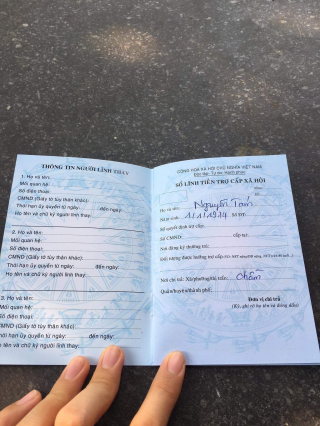 THÔNG TIN NGƯỜI LĨNH THAY
1. Họ và tên:
Mối quan hệ:
Số điện thoại:
CMND (Giấy tờ tùy thân khác):
Thời hạn ủy quyền từ ngày: đến ngày:
Họ tên và chữ ký người lĩnh thay:
2. Họ và tên:
Mối quan hệ:
Số điện thoại:
CMND (Giấy tờ tùy thân khác):
Thời hạn ủy quyền từ ngày: đến ngày:
Họ tên và chữ ký người lĩnh thay:
3. Họ và tên:
Mối quan hệ:
Số điện thoại:
CMND (Giấy tờ tùy thân khác):
Thời hạn ủy quyền từ ngày: đến ngày:
Họ tên và chữ ký người lĩnh thay:
CỘNG HÒA XÃ HỘI CHỦ NGHĨA VIỆT NAM
Độc lập - Tự do - Hạnh phúc
SỔ LĨNH TIỀN TRỢ CẤP XÃ HỘI
Họ và tên: Nguyễn
1/1/1914
Số quyết định trợ cấp:
Số CMND: cấp tại:
Nơi đăng ký thường trú:
Đối tượng được hưởng trợ cấp
Nơi chi trả: Xã/phường/thị trấn:
Quận/huyện/thành phố:
Đơn vị chi trả
(Ký, ghi rõ họ tên và đóng dấu)